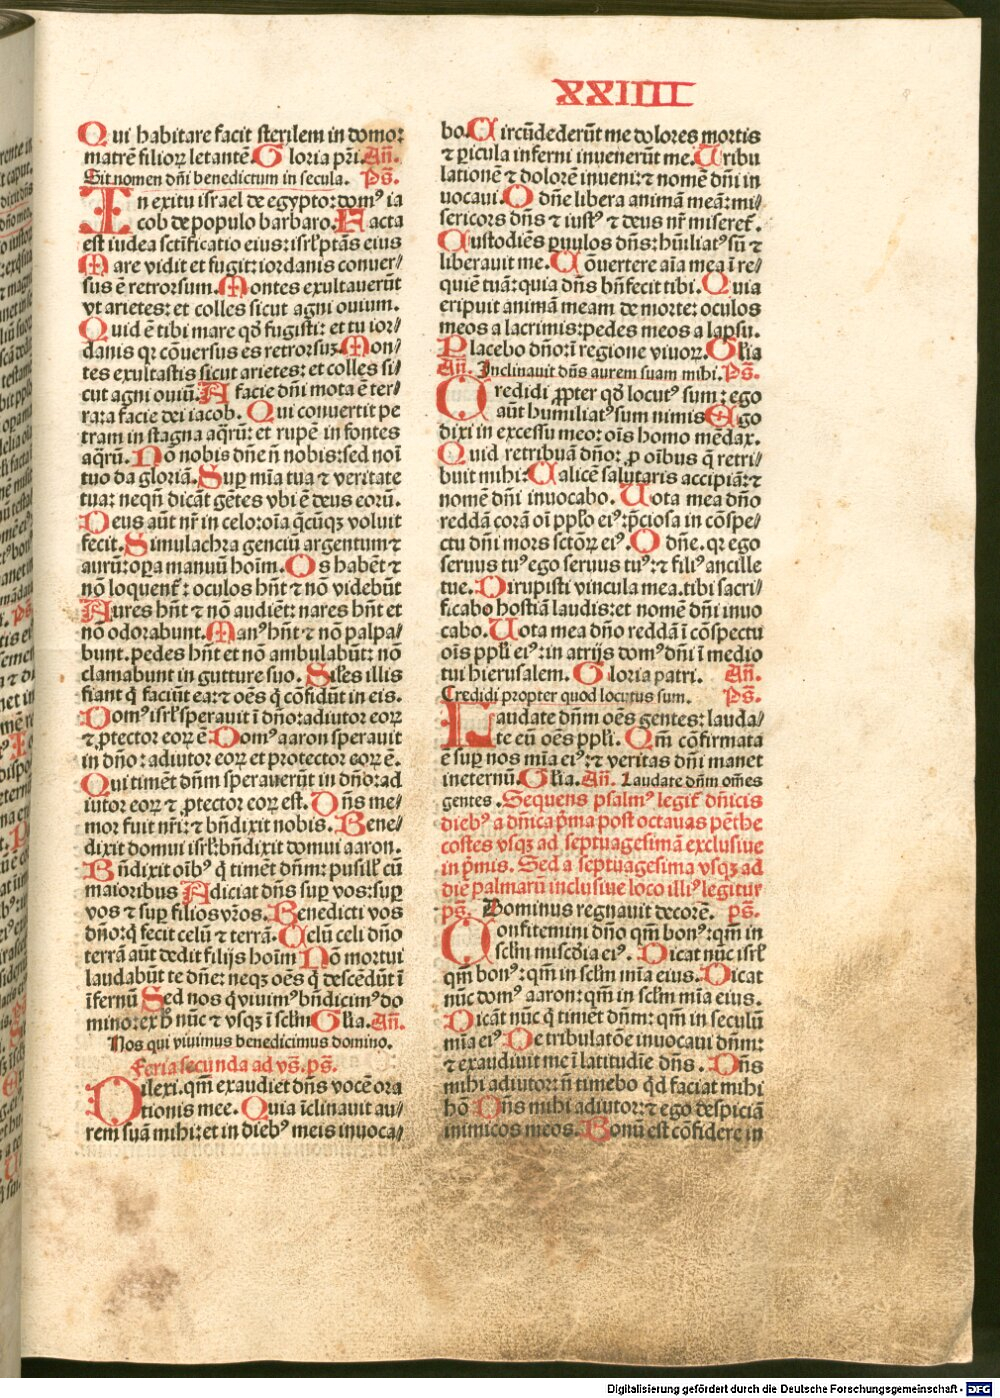 XXIIII
Qui habitare facit sterilem in domo:
matrē filioꝝ letantē. Gloria pr̄i. Añ.
Sit nomen dn̄i benedictum in secula. Ps̄.
In exitu israel de egypto: domꝰ ia
cob de populo barbaro. Facta
est iudea sctīficatio eius: isrl̓ ptās eius
Mare vidit et fugit: iordanis conuer/
sus ē retrorsum. Montes exultauerūt
vt arietes: et colles sicut agni ouium.
Quid ē tibi mare qð fugisti: et tu ior/
danis qꝛ cōuersus es retrorsuꝫ. Mon/
tes exultastis sicut arietes: et colles si/
cut agni ouiū. A facie dn̄i mota ē ter/
ra: a facie dei iacob. Qui conuertit pe
tram in stagna aq̄rū: et rupē in fontes
aq̄rū. Nō nobis dn̄e n̄ nobis: sed noī
tuo da gloriā. Suꝑ mīa tua ⁊ veritate
tua: neqn̄ dicāt gētes vbi ē deus eorū.
Deus aūt nr̄ in celo: oīa q̄cūqꝫ voluit
fecit. Simulachra genciū argentum ⁊
aurū: oꝑa manuū hoīm. Os habēt ⁊
nō loquentꝛ: oculos hn̄t ⁊ nō videbūt
Aures hn̄t ⁊ nō audiēt: nares hn̄t et
nō odorabunt. Manꝰ hn̄t ⁊ nō palpa/
bunt. pedes hn̄t et nō ambulabūt: nō
clamabunt in gutture suo. Sil̓es illis
fiant q̄ faciūt ea: ⁊ oēs q̄ cōfidūt in eis.
Domꝰ isrl̓ sperauit ī dn̄o: adiutor eoꝝ
⁊ ꝓtector eoꝝ ē. Domꝰ aaron sperauit
in dn̄o: adiutor eoꝝ et protector eoꝝ ē.
Qui timēt dn̄m sperauerūt in dn̄o: ad
iutor eoꝝ ⁊ ꝓtector eoꝝ est. Dn̄s me/
mor fuit nr̄i: ⁊ bn̄dixit nobis. Bene/
dixit domui isrl̓: bn̄dixit domui aaron.
Bn̄dixit oībꝰ q̄ timēt dn̄m: pusill̓ cū
maioribus Adiciat dn̄s suꝑ vos: suꝑ
vos ⁊ suꝑ filios vr̄os. Benedicti vos
dn̄o: q̄ fecit celū ⁊ terrā. Celū celi dn̄o
terrā aūt dedit filijs hoīm Nō mortui
laudabūt te dn̄e: neqꝫ oēs q̄ descēdūt ī
īfernū Sed nos q̄ viuimꝰ bn̄dicimꝰ do
mino: ex h̄ nūc ⁊ vsqꝫ ī scl̄m Gl̓ia. Añ.
Nos qui viuimus benedicimus domino.
Feria secunda ad vs̄. ps̄.
Dilexi. qm̄ exaudiet dn̄s vocē ora
tionis mee. Quia īclinauit au/
rem suā mihi: et in diebꝰ meis inuoca/
bo. Circūdederūt me dolores mortis
⁊ ꝑicula inferni inuenerūt me. Tribu
lationē ⁊ dolorē inueni: ⁊ nomē dn̄i in
uocaui. O dn̄e libera animā meā: mi/
sericors dn̄s ⁊ iustꝰ ⁊ deus nr̄ miseretꝛ.
Custodiēs ꝑuulos dn̄s: hūiliatꝰ sū ⁊
liberauit me. Cōuertere aīa mea ī re/
quiē tuā: quia dn̄s bn̄fecit tibi. Quia
eripuit animā meam de morte: oculos
meos a lacrimis: pedes meos a lapsu.
Placebo dn̄o: ī regione viuoꝝ. Gl̓ia
Añ. Inclinauit dn̄s aurem suam mihi. Ps̄.
Credidi ꝓpter qð locutꝰ sum: ego
aūt humiliatꝰ sum nimis Ego
dixi in excessu meo: oīs homo mēdax.
Quid retribuā dn̄o: ꝓ oībus q̄ retri/
buit mihi: Calicē salutaris accipiā: ⁊
nomē dn̄i inuocabo. Uota mea dn̄o
reddā corā oī ppl̓o eiꝰ: p̄ciosa in cōspe/
ctu dn̄i mors sctōꝝ eiꝰ. O dn̄e. qꝛ ego
seruus tuꝰ ego seruus tuꝰ: ⁊ filiꝰ ancille
tue. Dirupisti vincula mea. tibi sacri/
ficabo hostiā laudis: et nomē dn̄i inuo
cabo. Uota mea dn̄o reddā ī cōspectu
oīs ppl̓i eiꝰ: in atrijs domꝰ dn̄i ī medio
tui hierusalem. Gloria patri. Añ.
Credidi propter quod locutus sum. Ps̄.
Laudate dn̄m oēs gentes: lauda/
te eū oēs ppl̓i. Qm̄ cōfirmata
ē suꝑ nos mīa eiꝰ: ⁊ veritas dn̄i manet
in eternū. Gl̓ia. Añ. Laudate dn̄m om̄es
gentes. Sequens psalmꝰ legitꝛ dn̄icis
diebꝰ a dn̄ica p̄ma post octauas pēthe
costes vsqꝫ ad septuagesimā exclusiue
in p̄mis. Sed a septuagesima vsqꝫ ad
diē palmarū inclusiue loco illiꝰ legitur
ps̄. Dominus regnauit decorē. ps̄.
Confitemini dn̄o qm̄ bonꝰ: qm̄ in
scl̄m mis̄cdia eiꝰ. Dicat nūc isrl̓
qm̄ bonꝰ: qm̄ in scl̄m mīa eius. Dicat
nūc domꝰ aaron: qm̄ in scl̄m mīa eius.
Dicāt nūc q̄ timēt dn̄m: qm̄ in seculū
mīa eiꝰ De tribulatōe inuocaui dn̄m:
⁊ exaudiuit me ī latitudīe dn̄s. Dn̄s
mihi adiutor: n̄ timebo qd̄ faciat mihi
hō Dn̄s mihi adiutor: ⁊ ego despiciā
inimicos meos. Bonū est cōfidere in
Digitalisierung gefördert durch die Deutsche Forschungsgemeinschaft - DFG